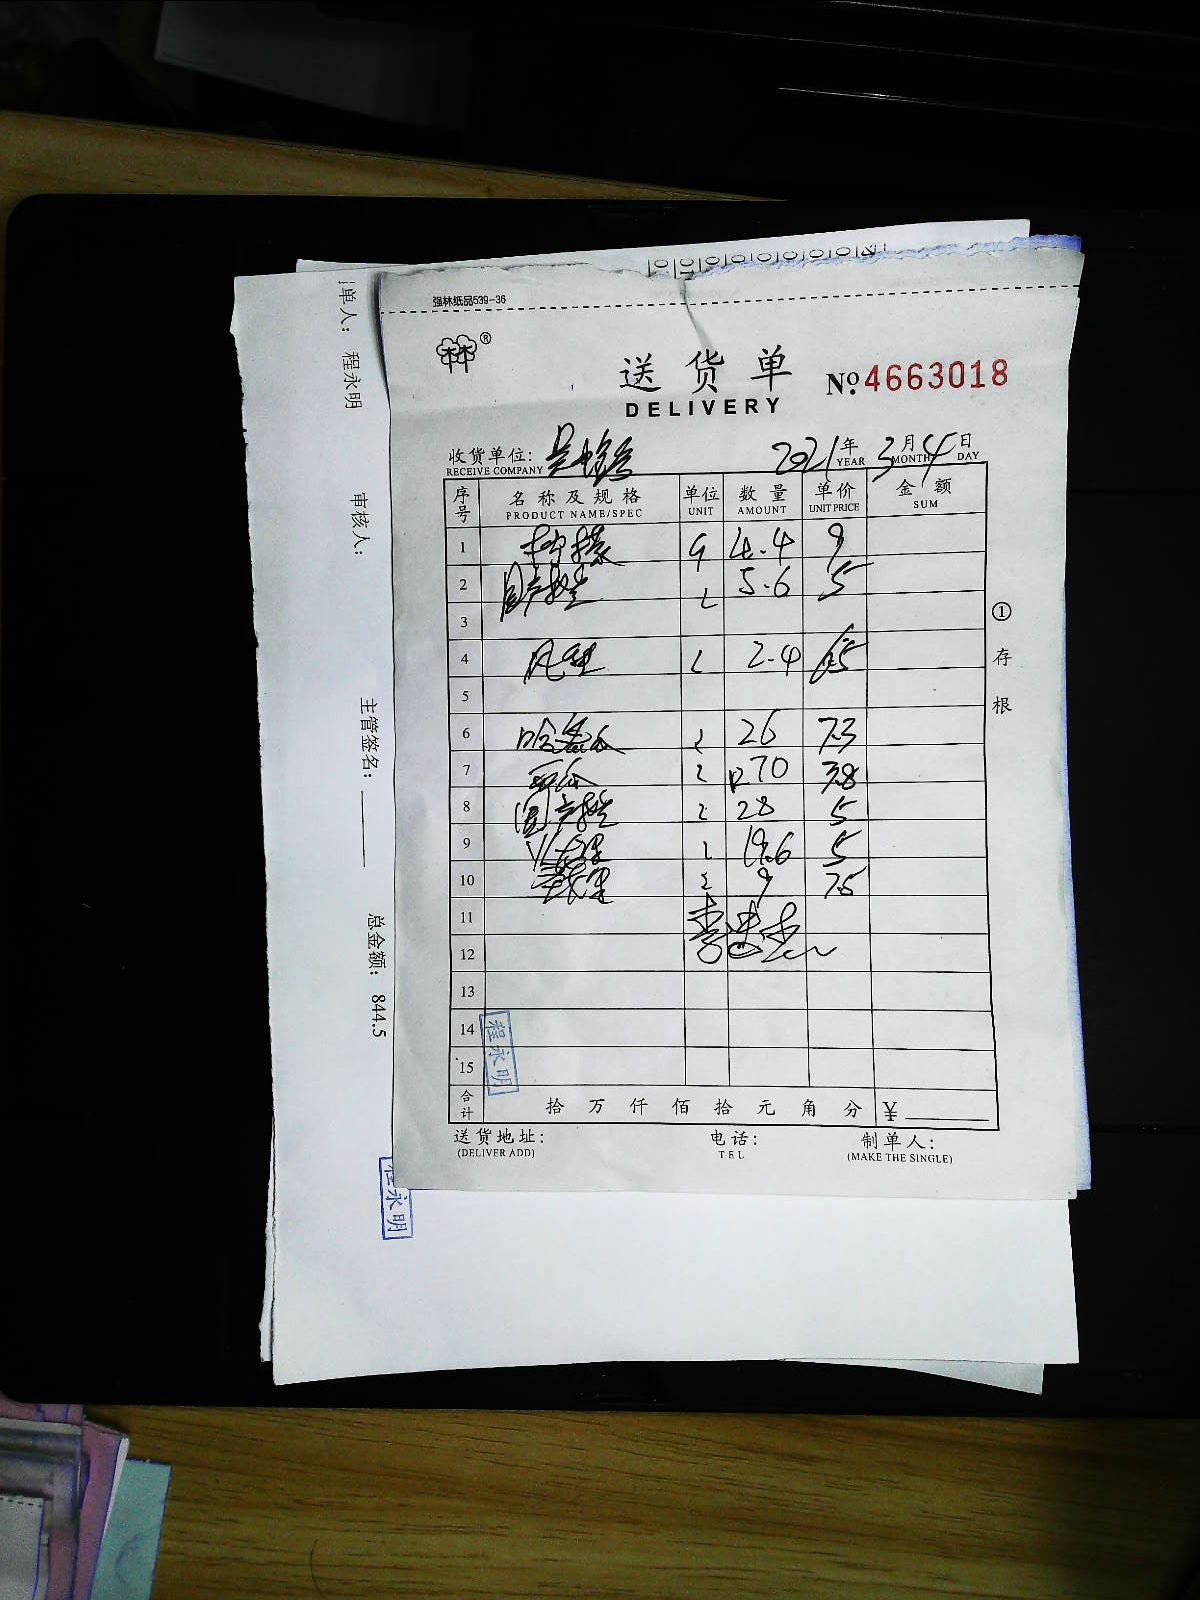 强林纸品539-36
林®
送货单 No. 4663018
DELIVERY
收货单位: 2021年3月4日
RECEIVE COMPANY YEAR MONTH DAY
序号 名称及规格 单位 数量 单价 金额
PRODUCT NAME/SPEC UNIT AMOUNT UNIT PRICE SUM
1 柠檬 4.4 9
2 国产提 5.6 5
3
4 凤梨 2.4
5
6 哈密瓜 26 7.3
7 西瓜 70 3.8
8 国产提 28 5
9 火龙果 19.6 5
10 9 7.5
11
12
13
14
15
合计 拾万仟佰拾元角分 ¥
送货地址: 电话: 制单人:
(DELIVER ADD) TEL (MAKE THE SINGLE)
①存根
程永明
单人: 程永明 审核人: 主管签名: 总金额: 844.5
程永明